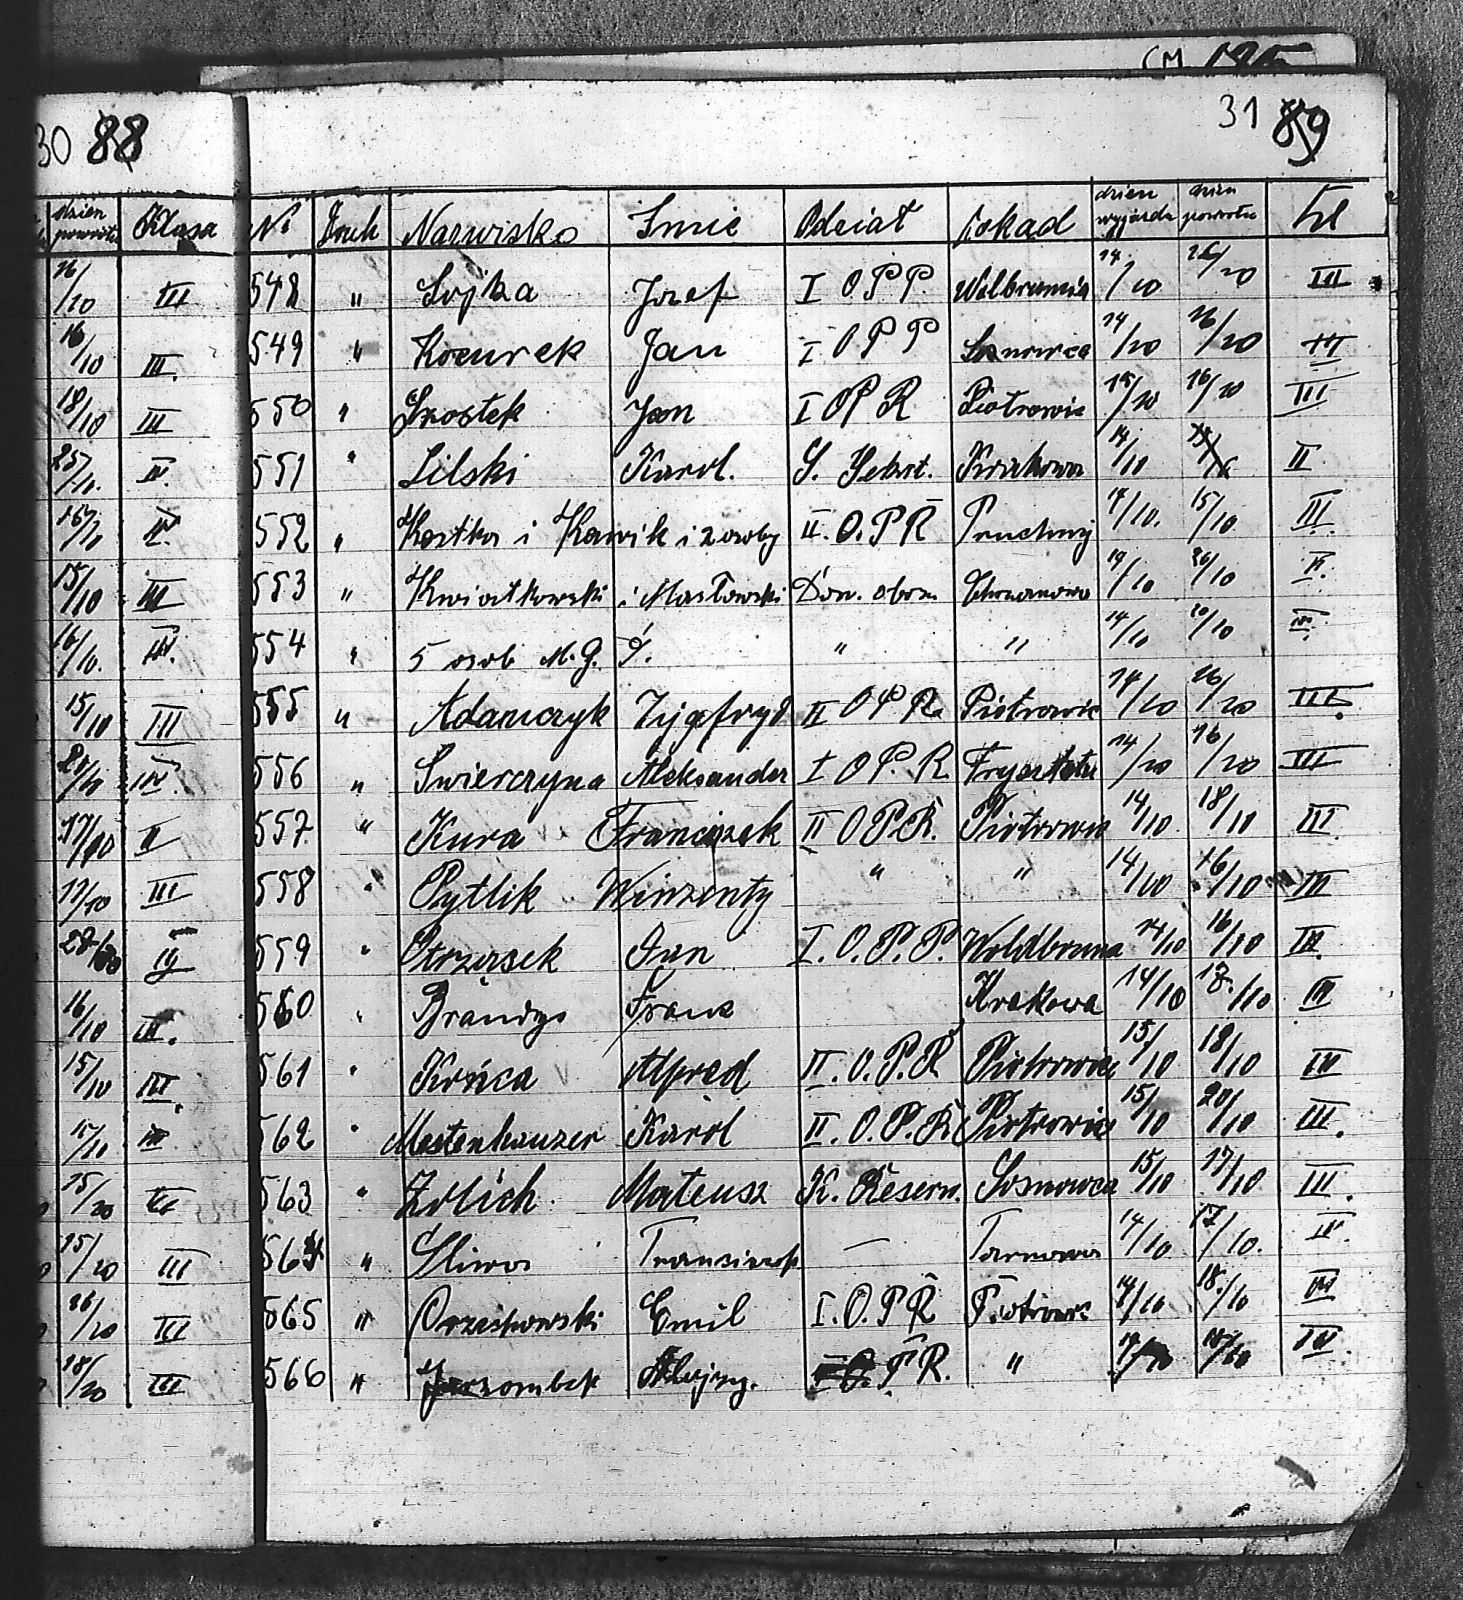 30 88
31 89
dzien powrotu Klasa
Nº Druh Nazwisko Imie Odział dokąd dzien wyjazdu dzien powrotu Kl
16/10 III 548 " Sojka Jozef I OPP Wolbromia 14/10 26/10 III
16/10 III. 549 " Kocurek Jan I OPP Sosnowca 14/10 16/10 III
18/10 III 550 " Szostek Jan I OPR Piotrowic 15/10 16/10 III
25/10. 551 " Lilski Karol. Krakowa 14/10 II
552 " Kostka i Kawik i 2 osoby II. O.P.R Pruchny 14/10. 15/10 III.
15/10 III 553 " Kwiatkowski i Masłowski Dow. obozu 14/10 20/10
16/10. 554 " 5 osob M.G. Ś. " " 14/10 20/10
15/10 III 555 " Adamczyk Zygfryd II OPR. Piotrowic 14/10 16/10 III.
556 " Swierczyna Aleksander I OP.R Frysztatu 14/10 16/10 III
17/10 II 557. " Kura Franciszek II OPR. Piotrowic 14/10 18/10 III.
17/10 III 558 " Pytlik Winzenty " " 14/10 16/10 III
559 " Ptrząsek Jan I. O.P.P. Woldbroma 14/10 16/10 III.
16/10 III. 560 " Brandys Franc Krakowa 14/10 18./10 III
15/10 III. 561 " Końca Alfred II. O.P.R Piotrowic 15/10 18/10 III
15/10 III 562 " Mestenhauzer Karol II. O.P.R. Piotrowic 15/10 20/10 III.
15/10 III 563 " Zolich Mateusz K. Reserw. Sosnowca 15/10 17/10 III.
15/10 III 564 " Sliwa Franciszek — Tarnowa 14/10 17/10.
16/10 III 565 " Orzechowski Emil I. O.P.R Piotrowic 14/10 18./10 III
18/10 III 566 " Alojzy. P.R. " III.